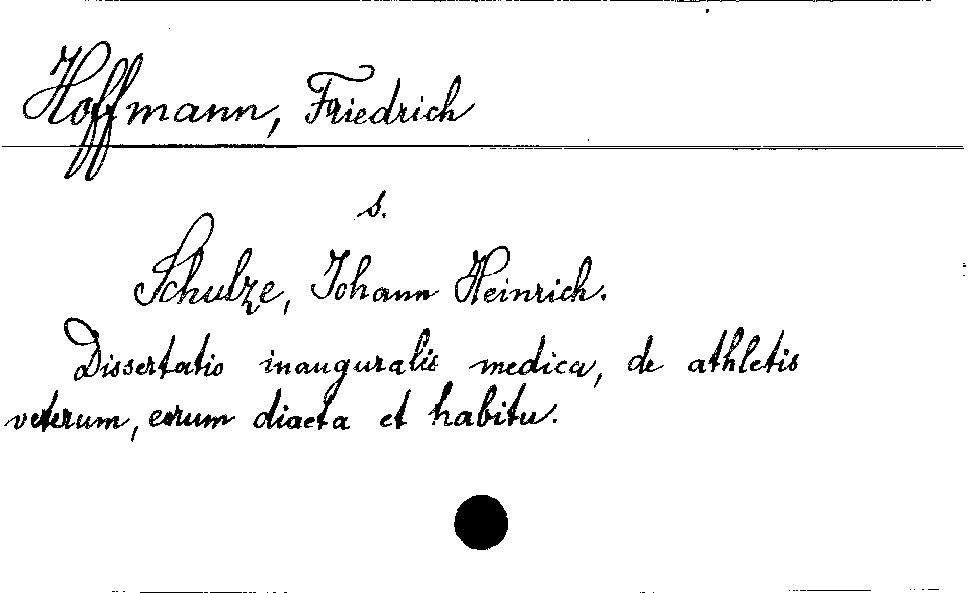 Hoffmann, Friedrich
s.
Schulze, Johann Heinrich.
Dissertatio inauguralis medica, de athletis
veterum, eorum diaeta et habitu.